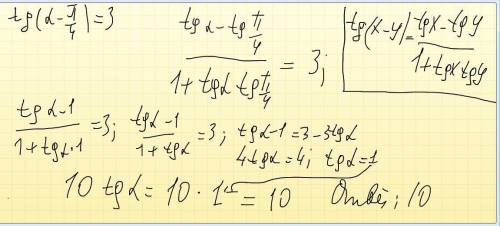 tg(α-π/4)=3
(tgα-tg π/4)/(1+tgα tg π/4) = 3;
tg(x-y)=(tgx-tgy)/(1+tgx tgy)
(tgα-1)/(1+tgα·1)=3; (tgα-1)/(1+tgα)=3; tgα-1=3-3tgα
4tgα=4; tgα=1
10 tgα = 10 · 1 = 10 Ответ; 10